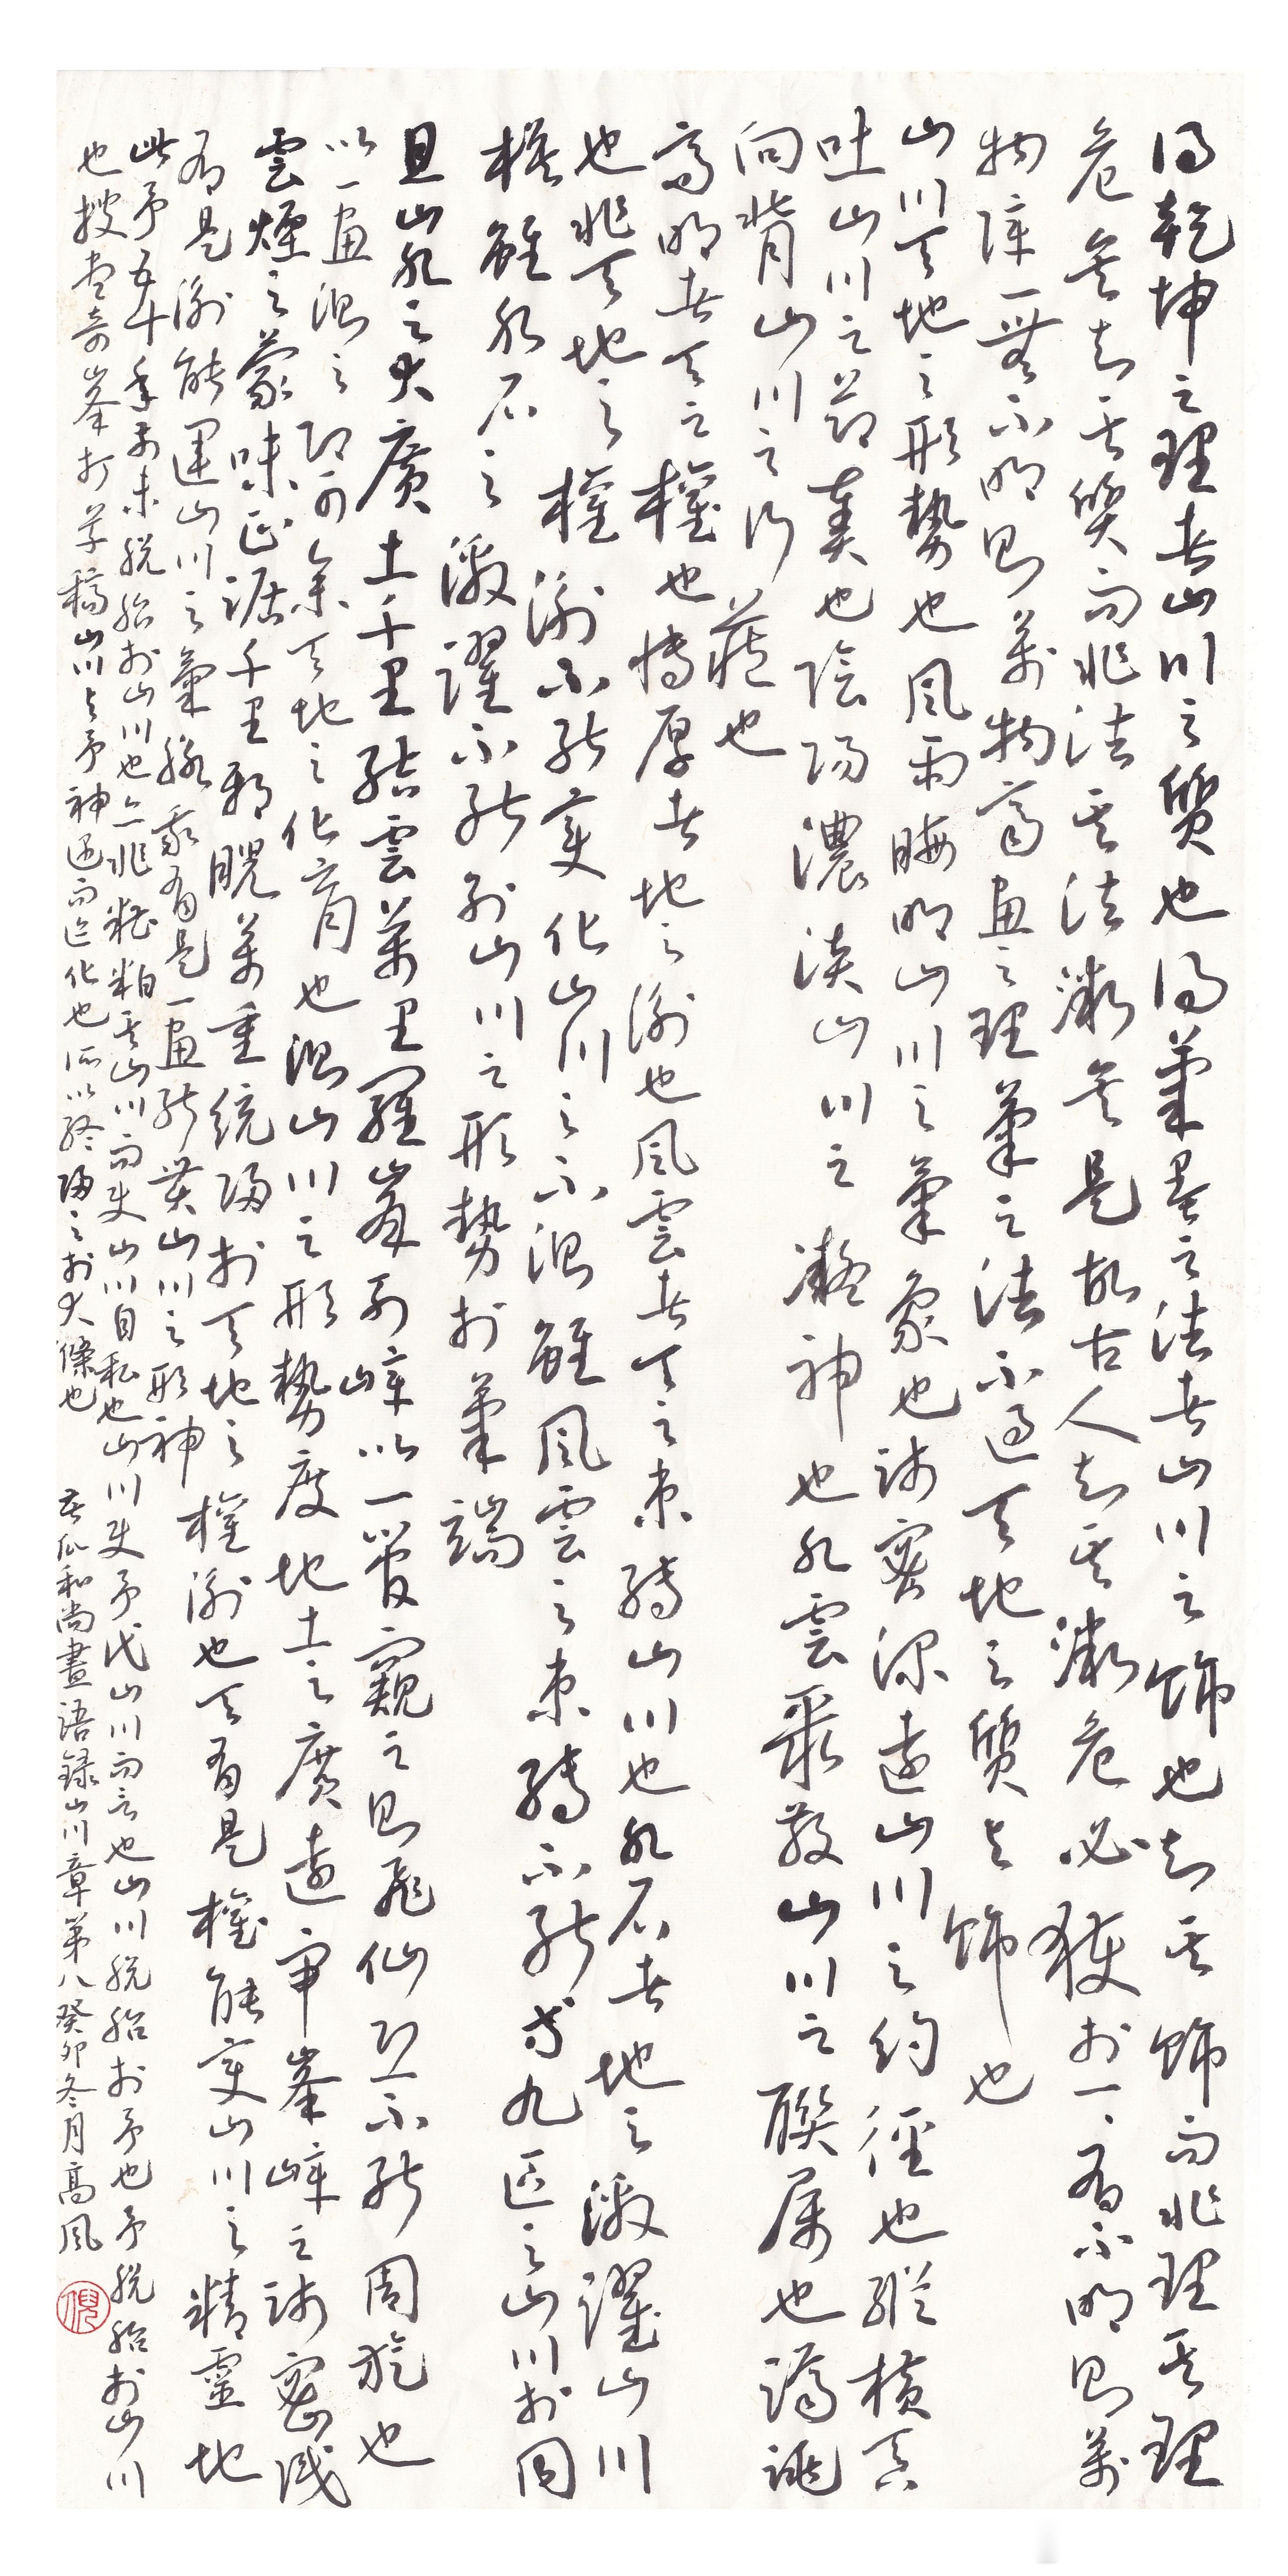 得乾坤之理者山川之質也得筆墨之法者山川之飾也知其飾而非理其理
危矣知其質而非法其法微矣是故古人知其微危必獲於一一有不明則萬
物障一無不明則萬物齊畫之理筆之法不過天地之質與飾也
山川天地之形勢也風雨晦明山川之氣象也疎密深遠山川之約徑也縱橫吞
吐山川之節奏也陰陽濃淡山川之凝神也水雲聚散山川之聯屬也蹲跳
向背山川之行藏也
高明者天之權也博厚者地之衡也風雲者天之束縛山川也水石者地之激躍山川
也非天地之權衡不能變化山川之不測雖風雲之束縛不能等九區之山川於同
模雖水石之激躍不能別山川之形勢於筆端
且山水之大廣土千里結雲萬里羅峯列嶂以一管窺之即飛仙恐不能周旋也
以一畫測之即可參天地之化育也測山川之形勢度地土之廣遠審峯嶂之疎密識
雲煙之蒙昧正踞千里邪睨萬重統歸於天地之權衡也天有是權能變山川之精靈地
有是衡能運山川之氣脈我有是一畫能貫山川之形神
此予五十年前未脫胎於山川也亦非糟粕其山川而使山川自私也山川使予代山川而言也山川脫胎於予也予脫胎於山川
也搜盡奇峯打草稿山川與予神遇而迹化也所以終歸之於大滌也 苦瓜和尚畫語錄山川章第八癸卯冬月高風
倪